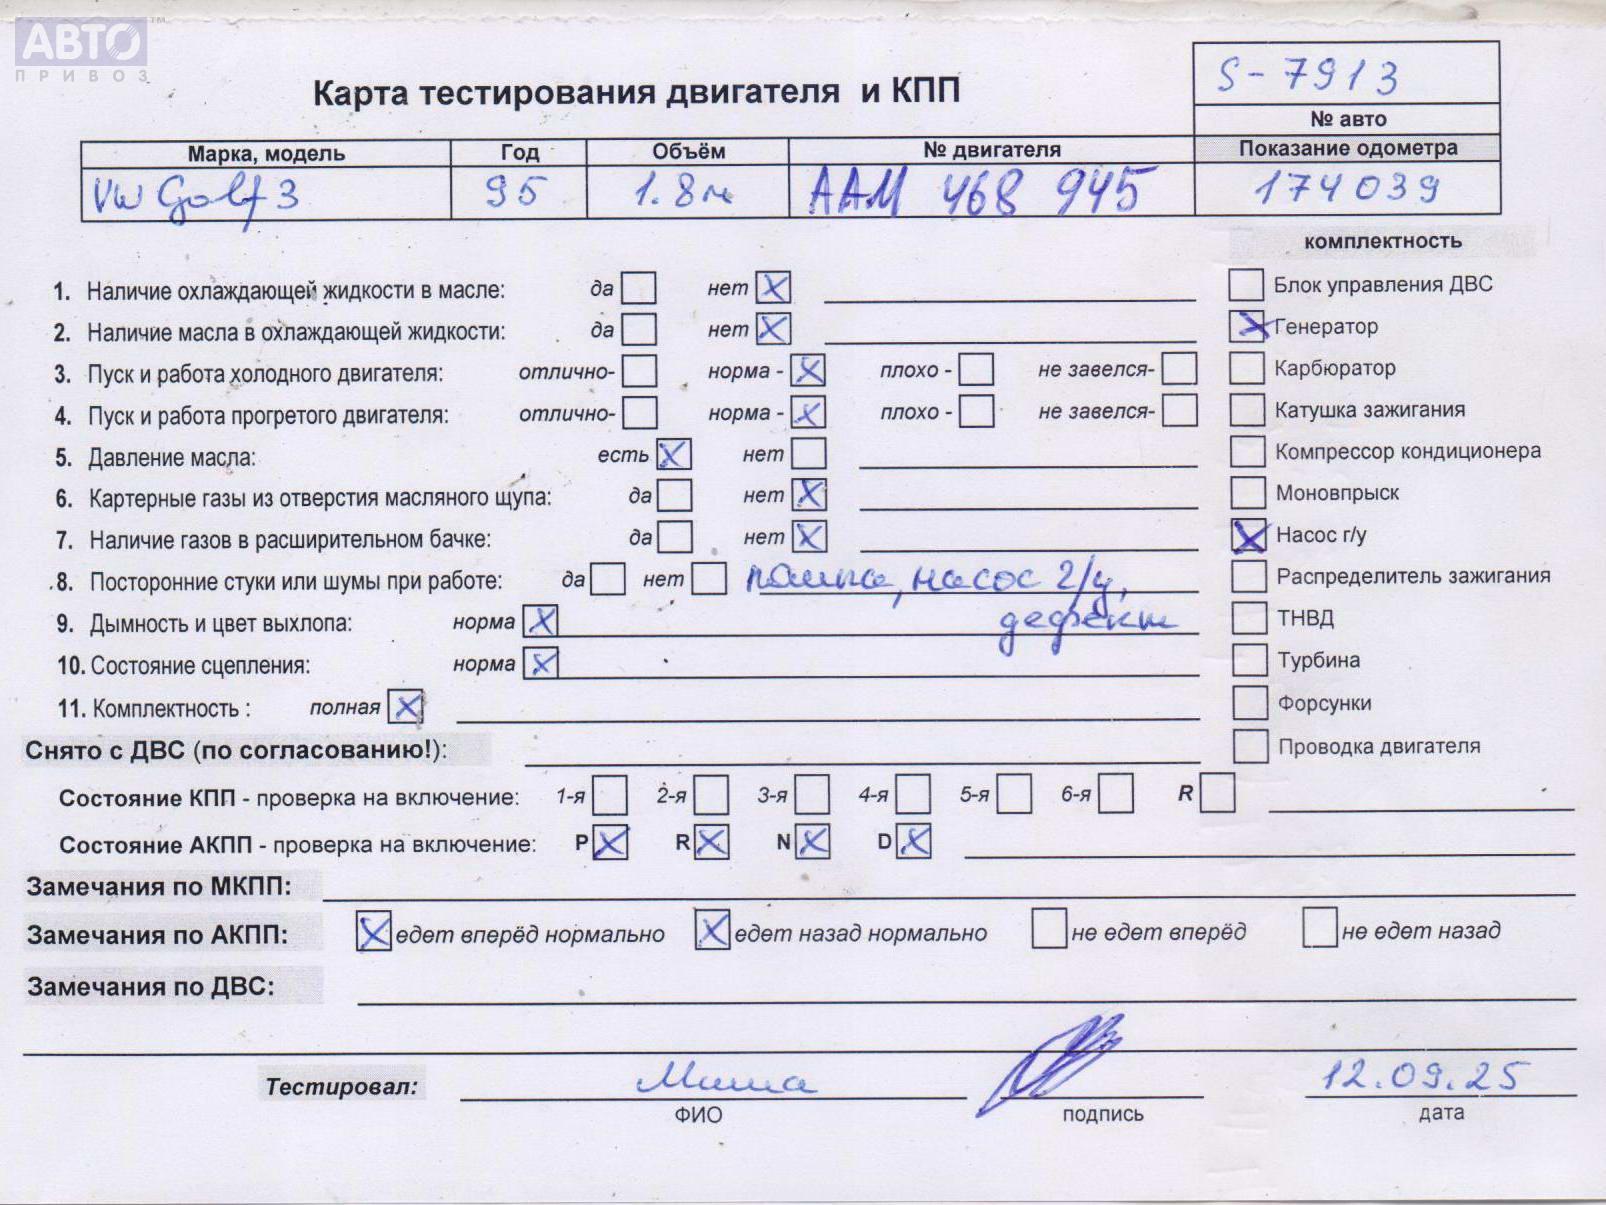 АВТО
ПРИВОЗ
Карта тестирования двигателя и КПП
S-7913
№ авто
Марка, модель Год Объём № двигателя Показание одометра
VW Golf 3 95 1.8м AAM 468 945 174039
комплектность
1. Наличие охлаждающей жидкости в масле: да нет X Блок управления ДВС
2. Наличие масла в охлаждающей жидкости: да нет X X Генератор
3. Пуск и работа холодного двигателя: отлично- норма - X плохо - не завелся- Карбюратор
4. Пуск и работа прогретого двигателя: отлично- норма - X плохо - не завелся- Катушка зажигания
5. Давление масла: есть X нет Компрессор кондиционера
6. Картерные газы из отверстия масляного щупа: да нет X Моновпрыск
7. Наличие газов в расширительном бачке: да нет X X Насос г/у
8. Посторонние стуки или шумы при работе: да нет помпа, насос г/у, Распределитель зажигания
9. Дымность и цвет выхлопа: норма X дефект ТНВД
10. Состояние сцепления: норма X Турбина
11. Комплектность : полная X Форсунки
Снято с ДВС (по согласованию!): Проводка двигателя
Состояние КПП - проверка на включение: 1-я 2-я 3-я 4-я 5-я 6-я R
Состояние АКПП - проверка на включение: P X R X N X D X
Замечания по МКПП:
Замечания по АКПП: X едет вперёд нормально X едет назад нормально не едет вперёд не едет назад
Замечания по ДВС:
Тестировал: Миша 12.09.25
ФИО подпись дата